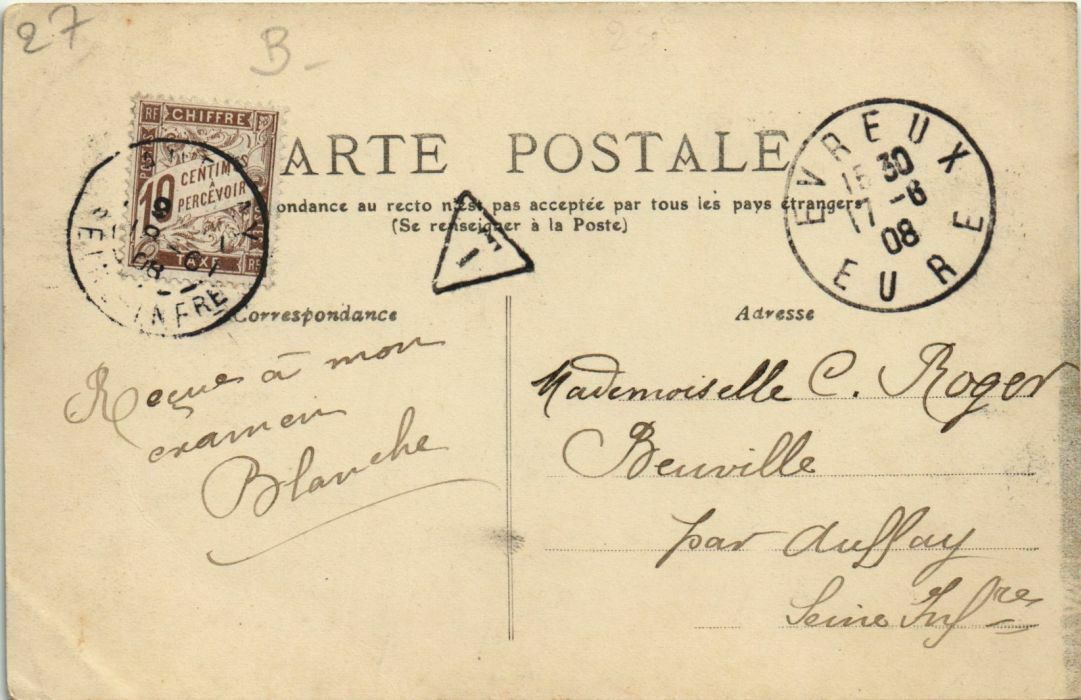 27
B-
RF CHIFFRE
10 CENTIMES
À
PERCEVOIR
TAXE RF
ARTE POSTALE
ondance au recto n'est pas acceptée par tous les pays étrangers
(Se renseigner à la Poste)
EVREUX
15 30
17 -6
08
EURE
T
INFRE
Correspondance
Adresse
Reçue à mon
examen
Blanche
Mademoiselle C. Roger
Beuville
par Auffay
Seine Infre